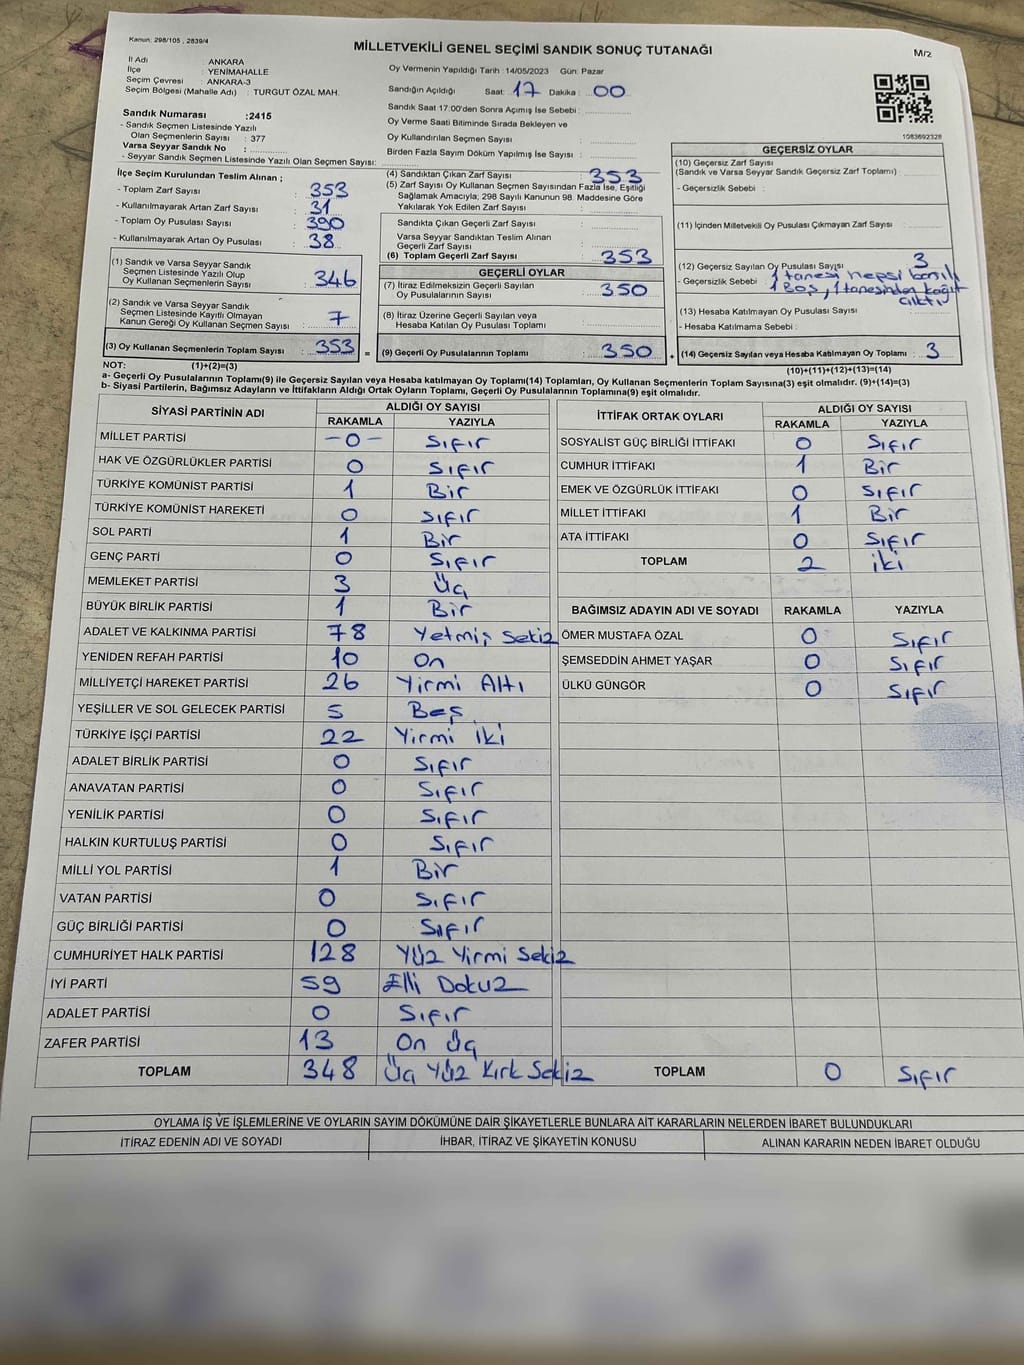 Kanun: 298/105 , 2839/4
MİLLETVEKİLİ GENEL SEÇİMİ SANDIK SONUÇ TUTANAĞI
M/2
İl Adı : ANKARA
İlçe : YENİMAHALLE
Seçim Çevresi : ANKARA-3
Seçim Bölgesi (Mahalle Adı) : TURGUT ÖZAL MAH.
Oy Vermenin Yapıldığı Tarih : 14/05/2023 Gün: Pazar
Sandığın Açıldığı Saat: 17 Dakika : 00
Sandık Saat 17:00'den Sonra Açımış İse Sebebi :
Oy Verme Saati Bitiminde Sırada Bekleyen ve
Oy Kullandırılan Seçmen Sayısı :
Birden Fazla Sayım Döküm Yapılmış İse Sayısı :
1083692328
Sandık Numarası :2415
- Sandık Seçmen Listesinde Yazılı
Olan Seçmenlerin Sayısı : 377
Varsa Seyyar Sandık No :
- Seyyar Sandık Seçmen Listesinde Yazılı Olan Seçmen Sayısı:
İlçe Seçim Kurulundan Teslim Alınan ;
- Toplam Zarf Sayısı : 353
- Kullanılmayarak Artan Zarf Sayısı : 31
- Toplam Oy Pusulası Sayısı : 390
- Kullanılmayarak Artan Oy Pusulası : 38
(1) Sandık ve Varsa Seyyar Sandık
Seçmen Listesinde Yazılı Olup
Oy Kullanan Seçmenlerin Sayısı : 346
(2) Sandık ve Varsa Seyyar Sandık
Seçmen Listesinde Kayıtlı Olmayan
Kanun Gereği Oy Kullanan Seçmen Sayısı : 7
(3) Oy Kullanan Seçmenlerin Toplam Sayısı : 353 =
(4) Sandıktan Çıkan Zarf Sayısı : 353
(5) Zarf Sayısı Oy Kullanan Seçmen Sayısından Fazla İse, Eşitliği
Sağlamak Amacıyla, 298 Sayılı Kanunun 98. Maddesine Göre
Yakılarak Yok Edilen Zarf Sayısı :
Sandıkta Çıkan Geçerli Zarf Sayısı :
Varsa Seyyar Sandıktan Teslim Alınan
Geçerli Zarf Sayısı :
(6) Toplam Geçerli Zarf Sayısı : 353
GEÇERLİ OYLAR
(7) İtiraz Edilmeksizin Geçerli Sayılan
Oy Pusulasının Sayısı : 350
(8) İtiraz Üzerine Geçerli Sayılan veya
Hesaba Katılan Oy Pusulası Toplamı :
(9) Geçerli Oy Pusulalarının Toplamı : 350 +
GEÇERSİZ OYLAR
(10) Geçersiz Zarf Sayısı
(Sandık ve Varsa Seyyar Sandık Geçersiz Zarf Toplamı) :
- Geçersizlik Sebebi :
(11) İçinden Milletvekili Oy Pusulası Çıkmayan Zarf Sayısı :
(12) Geçersiz Sayılan Oy Pusulası Sayısı : 3
1 tanesi hepsi basılı
- Geçersizlik Sebebi : 1 Boş, 1 tanesinden kağıt
çıktı
(13) Hesaba Katılmayan Oy Pusulası Sayısı :
- Hesaba Katılmama Sebebi :
(14) Geçersiz Sayılan veya Hesaba Katılmayan Oy Toplamı : 3
NOT: (1)+(2)=(3)
(10)+(11)+(12)+(13)=(14)
a- Geçerli Oy Pusulalarının Toplamı(9) ile Geçersiz Sayılan veya Hesaba katılmayan Oy Toplamı(14) Toplamları, Oy Kullanan Seçmenlerin Toplam Sayısına(3) eşit olmalıdır. (9)+(14)=(3)
b- Siyasi Partilerin, Bağımsız Adayların ve İttifakların Aldığı Ortak Oyların Toplamı, Geçerli Oy Pusulalarının Toplamına(9) eşit olmalıdır.
SİYASİ PARTİNİN ADI ALDIĞI OY SAYISI
RAKAMLA YAZIYLA
MİLLET PARTİSİ -0- Sıfır
HAK VE ÖZGÜRLÜKLER PARTİSİ 0 Sıfır
TÜRKİYE KOMÜNİST PARTİSİ 1 Bir
TÜRKİYE KOMÜNİST HAREKETİ 0 Sıfır
SOL PARTİ 1 Bir
GENÇ PARTİ 0 Sıfır
MEMLEKET PARTİSİ 3 Üç
BÜYÜK BİRLİK PARTİSİ 1 Bir
ADALET VE KALKINMA PARTİSİ 78 Yetmiş Sekiz
YENİDEN REFAH PARTİSİ 10 On
MİLLİYETÇİ HAREKET PARTİSİ 26 Yirmi Altı
YEŞİLLER VE SOL GELECEK PARTİSİ 5 Beş
TÜRKİYE İŞÇİ PARTİSİ 22 Yirmi iki
ADALET BİRLİK PARTİSİ 0 Sıfır
ANAVATAN PARTİSİ 0 Sıfır
YENİLİK PARTİSİ 0 Sıfır
HALKIN KURTULUŞ PARTİSİ 0 Sıfır
MİLLİ YOL PARTİSİ 1 Bir
VATAN PARTİSİ 0 Sıfır
GÜÇ BİRLİĞİ PARTİSİ 0 Sıfır
CUMHURİYET HALK PARTİSİ 128 Yüz Yirmi Sekiz
İYİ PARTİ 59 Elli Dokuz
ADALET PARTİSİ 0 Sıfır
ZAFER PARTİSİ 13 On Üç
TOPLAM 348 Üç Yüz Kırk Sekiz
İTTİFAK ORTAK OYLARI ALDIĞI OY SAYISI
RAKAMLA YAZIYLA
SOSYALİST GÜÇ BİRLİĞİ İTTİFAKI 0 Sıfır
CUMHUR İTTİFAKI 1 Bir
EMEK VE ÖZGÜRLÜK İTTİFAKI 0 Sıfır
MİLLET İTTİFAKI 1 Bir
ATA İTTİFAKI 0 Sıfır
TOPLAM 2 iki
BAĞIMSIZ ADAYIN ADI VE SOYADI RAKAMLA YAZIYLA
ÖMER MUSTAFA ÖZAL 0 Sıfır
ŞEMSEDDİN AHMET YAŞAR 0 Sıfır
ÜLKÜ GÜNGÖR 0 Sıfır
TOPLAM 0 Sıfır
OYLAMA İŞ VE İŞLEMLERİNE VE OYLARIN SAYIM DÖKÜMÜNE DAİR ŞİKAYETLERLE BUNLARA AİT KARARLARIN NELERDEN İBARET BULUNDUKLARI
İTİRAZ EDENİN ADI VE SOYADI İHBAR, İTİRAZ VE ŞİKAYETİN KONUSU ALINAN KARARIN NEDEN İBARET OLDUĞU